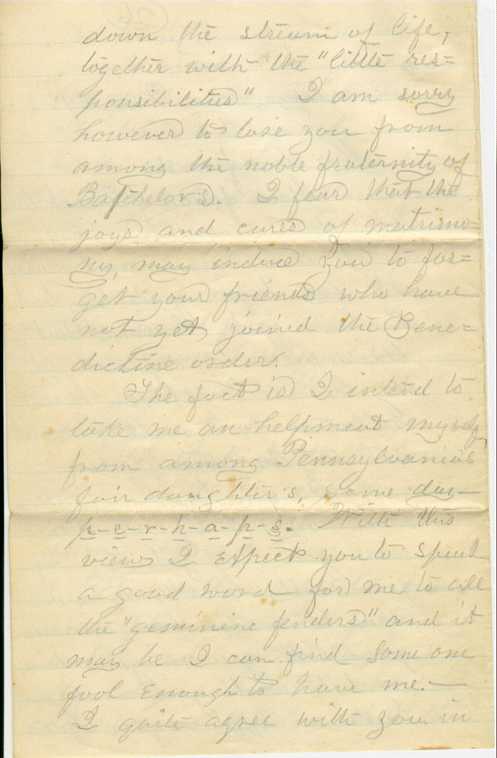 down the stream of life,
together with the "little res=
ponsibilities" I am sorry
however to lose you from
among the noble fraternity of
Batchelors. I fear that the
joys and cares of matrimo=
ny, may induce you to for=
get your friends who have
not yet joined the Bene=
dictine order.
The fact is I intend to
take me an helpmeat myself
from among Pennsylvania's
fair daughter's, some day—
p-e-r-h-a-p-s. With this
view I expect you to speak
a good word for me to all
the "geminine fenders" and it
may be I can find some one
fool enough to have me.—
I quite agree with you in